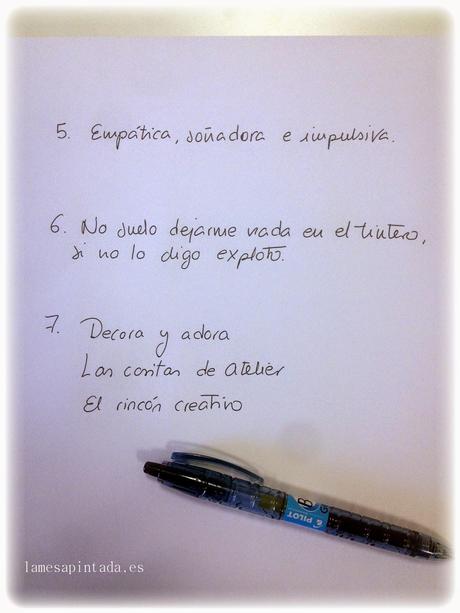 5. Empática, soñadora e impulsiva.
6. No suelo dejarme nada en el tintero,
si no lo digo exploto.
7. Decora y adora
Las cositas de atelier
El rincón creativo
PILOT
B
lamesapintada.es